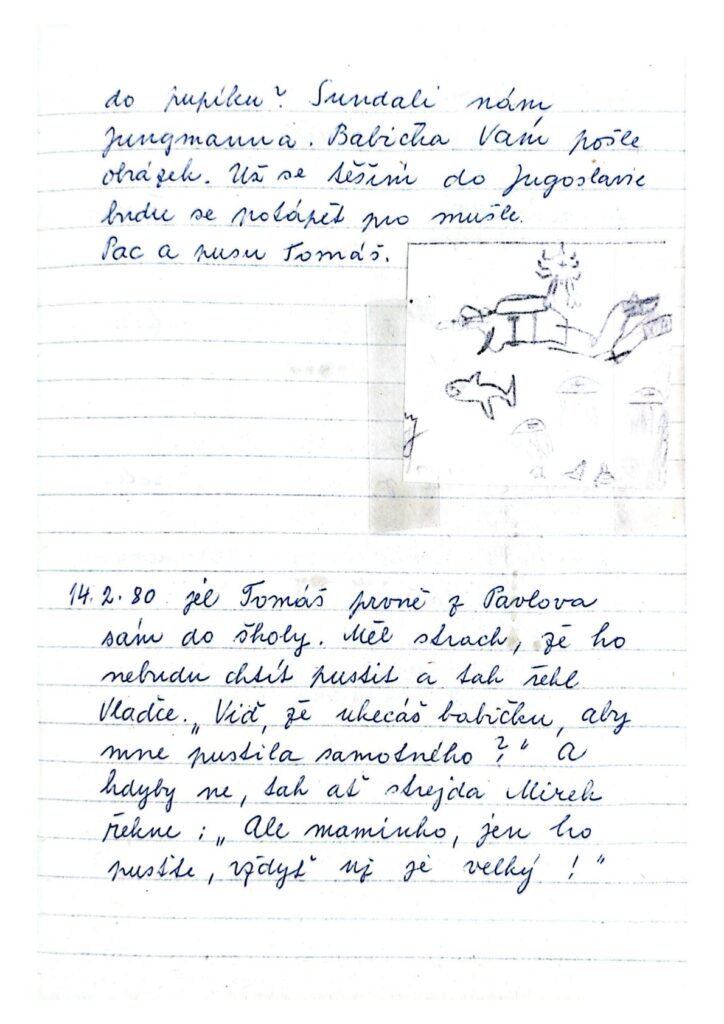 do pupíku? Sundali nám
Jungmanna. Babička Vám pošle
obrázek. Už se těším do Jugoslavie
budu se potápět pro mušle.
Pac a pusu Tomáš.
14.2.80 jel Tomáš prvně z Pavlova
sám do školy. Měl strach, že ho
nebudu chtít pustit a tak řekl
Vladce. „Viď, že ukecáš babičku, aby
mne pustila samotného?" A
kdyby ne, tak ať strejda Mirek
řekne: „Ale maminko, jen ho
pusťte, vždyť už je velký!"